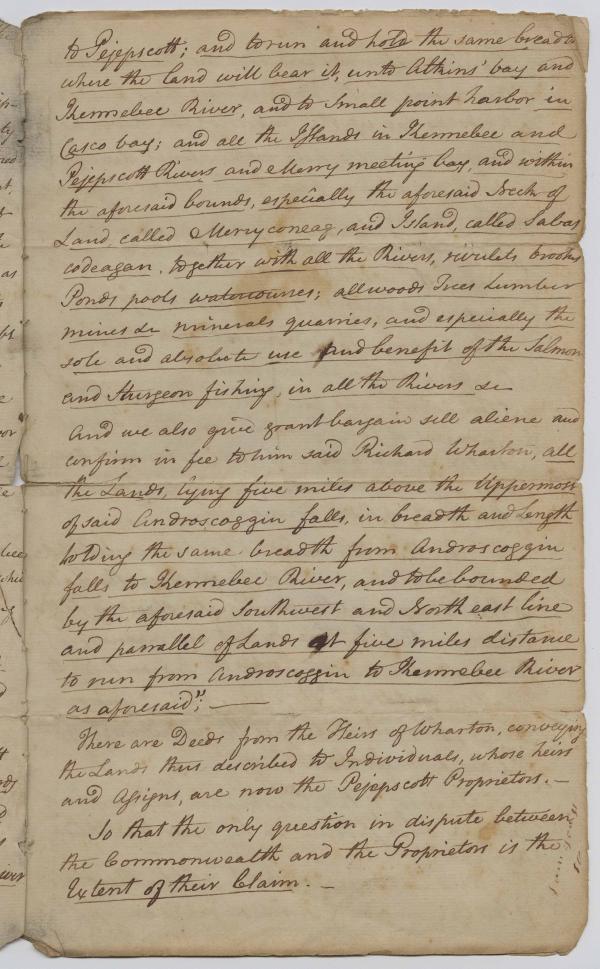 to Pejepscott; and to run and hold the same breadth
where the land will bear it, unto Atkins' bay and
Kennebec River, and to Small point harbor in
Casco bay; and all the Islands in Kennebec and
Pejepscott Rivers and Merry meeting bay, and within
the aforesaid bounds, especially the aforesaid Neck of
Land, called Merryconeag, and Island, called Sabas
codeagan, together with all the Rivers, rivulets brooks
Ponds pools watercourses; all woods Trees Lumber
mines &c minerals quarries, and especially the
sole and absolute use and benefit of the Salmon
and Sturgeon fishing, in all the Rivers &c
And we also give grant bargain sell aliene and
confirm in fee to him said Richard Wharton, all
the Lands, lying five miles above the Uppermost
of said Androscoggin falls, in breadth and Length
holding the same breadth from Androscoggin
falls to Kennebec River, and to be bounded
by the aforesaid Southwest and North east line
and parrallel of Lands at five miles distance
to run from Androscoggin to Kennebec River
as aforesaid"; —
There are Deeds from the Heirs of Wharton, conveying
the Lands thus described to Individuals, whose heirs
and Assigns, are now the Pejepscott Proprietors. —
So that the only question in dispute between
the Commonwealth and the Proprietors is the
Extent of their Claim. —